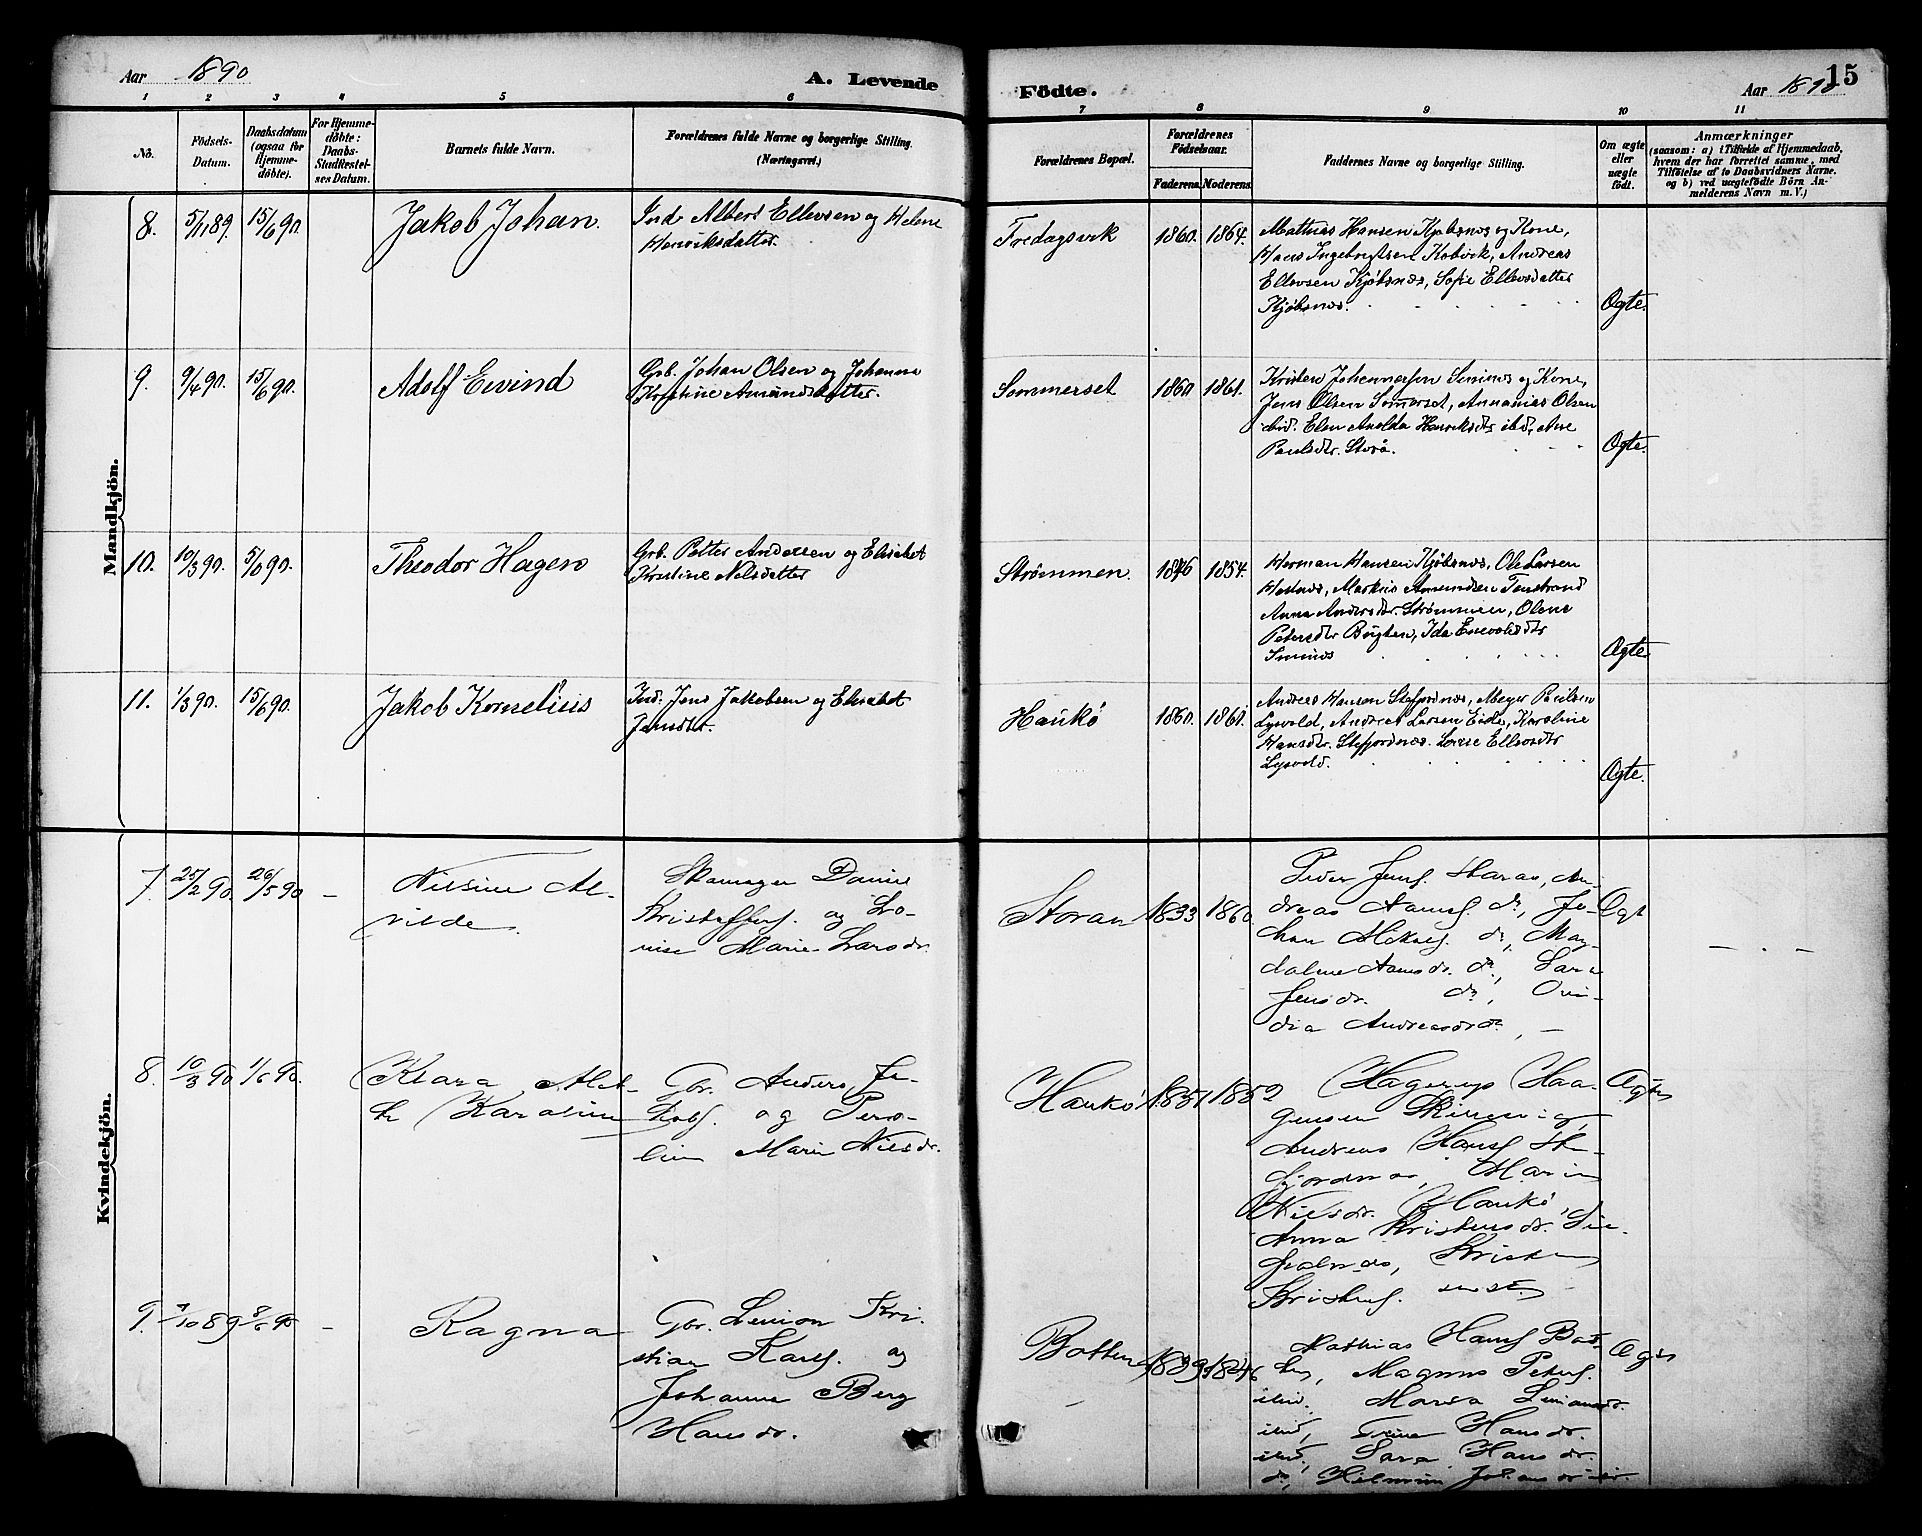 Aar 1890
A. Levende
Födte.
Aar 1890
15
1 2 3 4 5 6 7 8 9 10 11
No.
Födsels-
Datum.
Daabsdatum
(ogsaa for
Hjemme-
döbte).
For Hjemme-
döbte:
Daabs-
Stadfæstel-
ses Datum.
Barnets fulde Navn.
Forældrenes fulde Navne og borgerlige Stilling.
(Næringsvei.)
Forældrenes Bopæl.
Forældrenes
Födselsaar.
Faderens.
Moderens.
Faddernes Navne og borgerlige Stilling.
Om ægte
eller
uægte
födt.
Anmærkninger
(saasom: a) i Tilfælde af Hjemmedaab,
hvem der har forrettet samme, med
Tilföielse af to Daabsvidners Navne.
og b) ved uægtefödte Börn An-
melderens Navn m. V.)
Mandkjön.
8. 5/11 89. 15/6 90. Jakob Johan. Ind. Albert Ellevsen og Helene
Henriksdatter.
Fredagsvik 1860. 1864.
Mathias Hansen Kjøbsnes og Kone,
Hans Ingebrigtsen Kobvik, Andreas
Ellevsen Kjøbsnes, Sofie Ellevsdatter
Kjøbsnes. Ægte.
9. 9/4 90. 15/6 90. Adolf Eivind Grb. Johan Olsen og Johanna
Kristine Amundsdatter.
Sommerset 1860 1861.
Kristen Johannessen Smines og Kone,
Jens Olsen Somerset, Annanias Olsen
ibid. Elen Anolda Henriksdtr ibd, Ane
Paulsdtr. Storå. Ægte.
10. 10/3 90. 5/6 90. Theodor Hagen Grb. Petter Andersen og Elisabet
Kristine Nelsdatter
Strømmen. 1846 1854.
Herman Hansen Kjøbsnes, Ole Larsen
Hesnes, Markus Amundsen Tenstrand
Anna Andersdtr. Strømmen, Olene
Petersdtr Bugten, Ida Enevoldsdtr
Smines Ægte.
11. 1/3 90. 15/6 90. Jakob Kornelius Ind. Jens Jakobsen og Elisabet
Jensdtr.
Haukö 1860. 1861.
Andreas Hansen Stefjordnes, Meyer Paulsen
Lysvold, Andreas Larsen Eide, Karoline
Hansdtr. Stefjordnes. Lovise Ellevsdtr
Lysvold. Ægte.
Kvindekjön.
7. 25/2 90. 26/5 90 – Nilsine Al-
vilde.
Daniel
Kristoffers. og Lo-
vise Marie Larsdr.
Storaa 1833 1860.
Peder Jens. Haraas, An-
dreas Aames. do, Jo-
han do, Mag-
dalene Aamesdr. do, Sara
Jensdr. do, Ovi-
dia Andreasdr do, – Ægt – . –
8. 10/3 90 1/6 90. Klara
Karoline
Gbr. Anders Ja-
kobs. og Pero-
line Marie Nilsdr.
Haukö 1851 1852
Hagerup Haa-
gensen
Andreas Hans. Ste-
fjordnes, Marie
Nilsdr. Haukö,
Anna Kristensdr.
Kristen
Kristens. Ægte
9. 7/10 89 8/6 90 – Ragna Gbr. Simon Kri-
stian Karls. og
Johanna Berg
Hansdr.
Botten 1839 1846
Mathias Hans. Bot-
ten, Magnus Peters.
ibid. Maria Simonsdr.
ibid, Trine Hansdr.
ibid, Sara Hansdr.
do, Johansdr Ægte